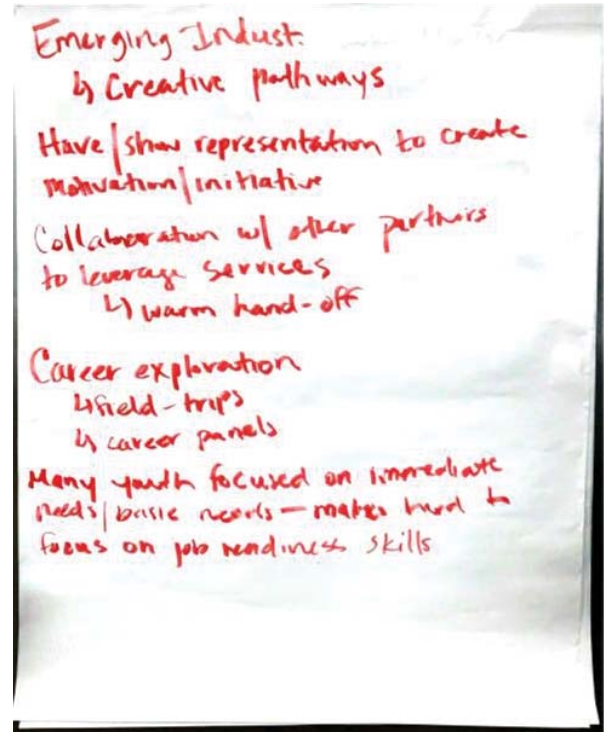 Emerging Indust.
↳ Creative pathways
Have/show representation to create
motivation/initiative
Collaboration w/ other partners
to leverage services
↳ warm hand-off
Career exploration
↳ field-trips
↳ career panels
Many youth focused on immediate
needs/basic needs - makes hard to
focus on job readiness skills